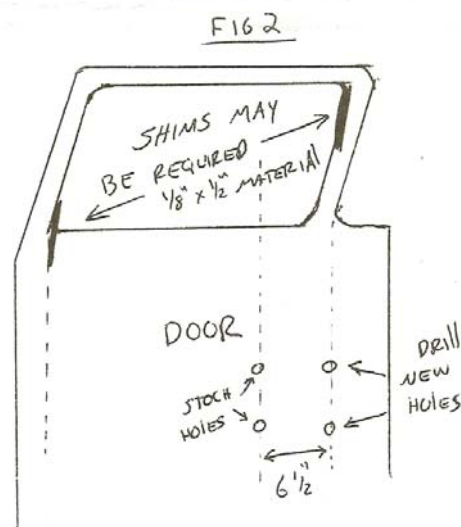 FIG 2
SHIMS MAY
BE REQUIRED
1/8" x 1/2" MATERIAL
DOOR
STOCK
HOLES
DRILL
NEW
HOLES
6 1/2"